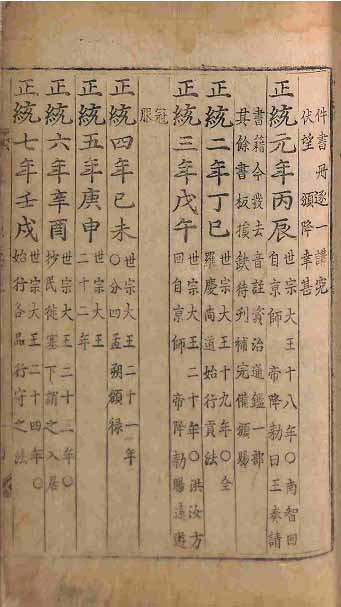 件書冊逐一講究
伏望 頒降幸甚
正統元年丙辰
世宗大王十八年○南智回
自京師 帝降勅曰王奏請
書籍今發去音註資治通鑑一部
其餘書板損缺待刊補完備頒賜
正統二年丁巳
世宗大王十九年○全
羅慶尚道始行貢法
正統三年戊午
世宗大王二十年○洪汝方
回自京師 帝降勅賜遠遊
冠
服
正統四年己未
世宗大王二十一年
○分四孟朔頒祿
正統五年庚申
世宗大王
二十二年
正統六年辛酉
世宗大王二十三年○
抄民徙塞下謂之入居
正統七年壬戌
世宗大王二十四年○
始行各品行守之法